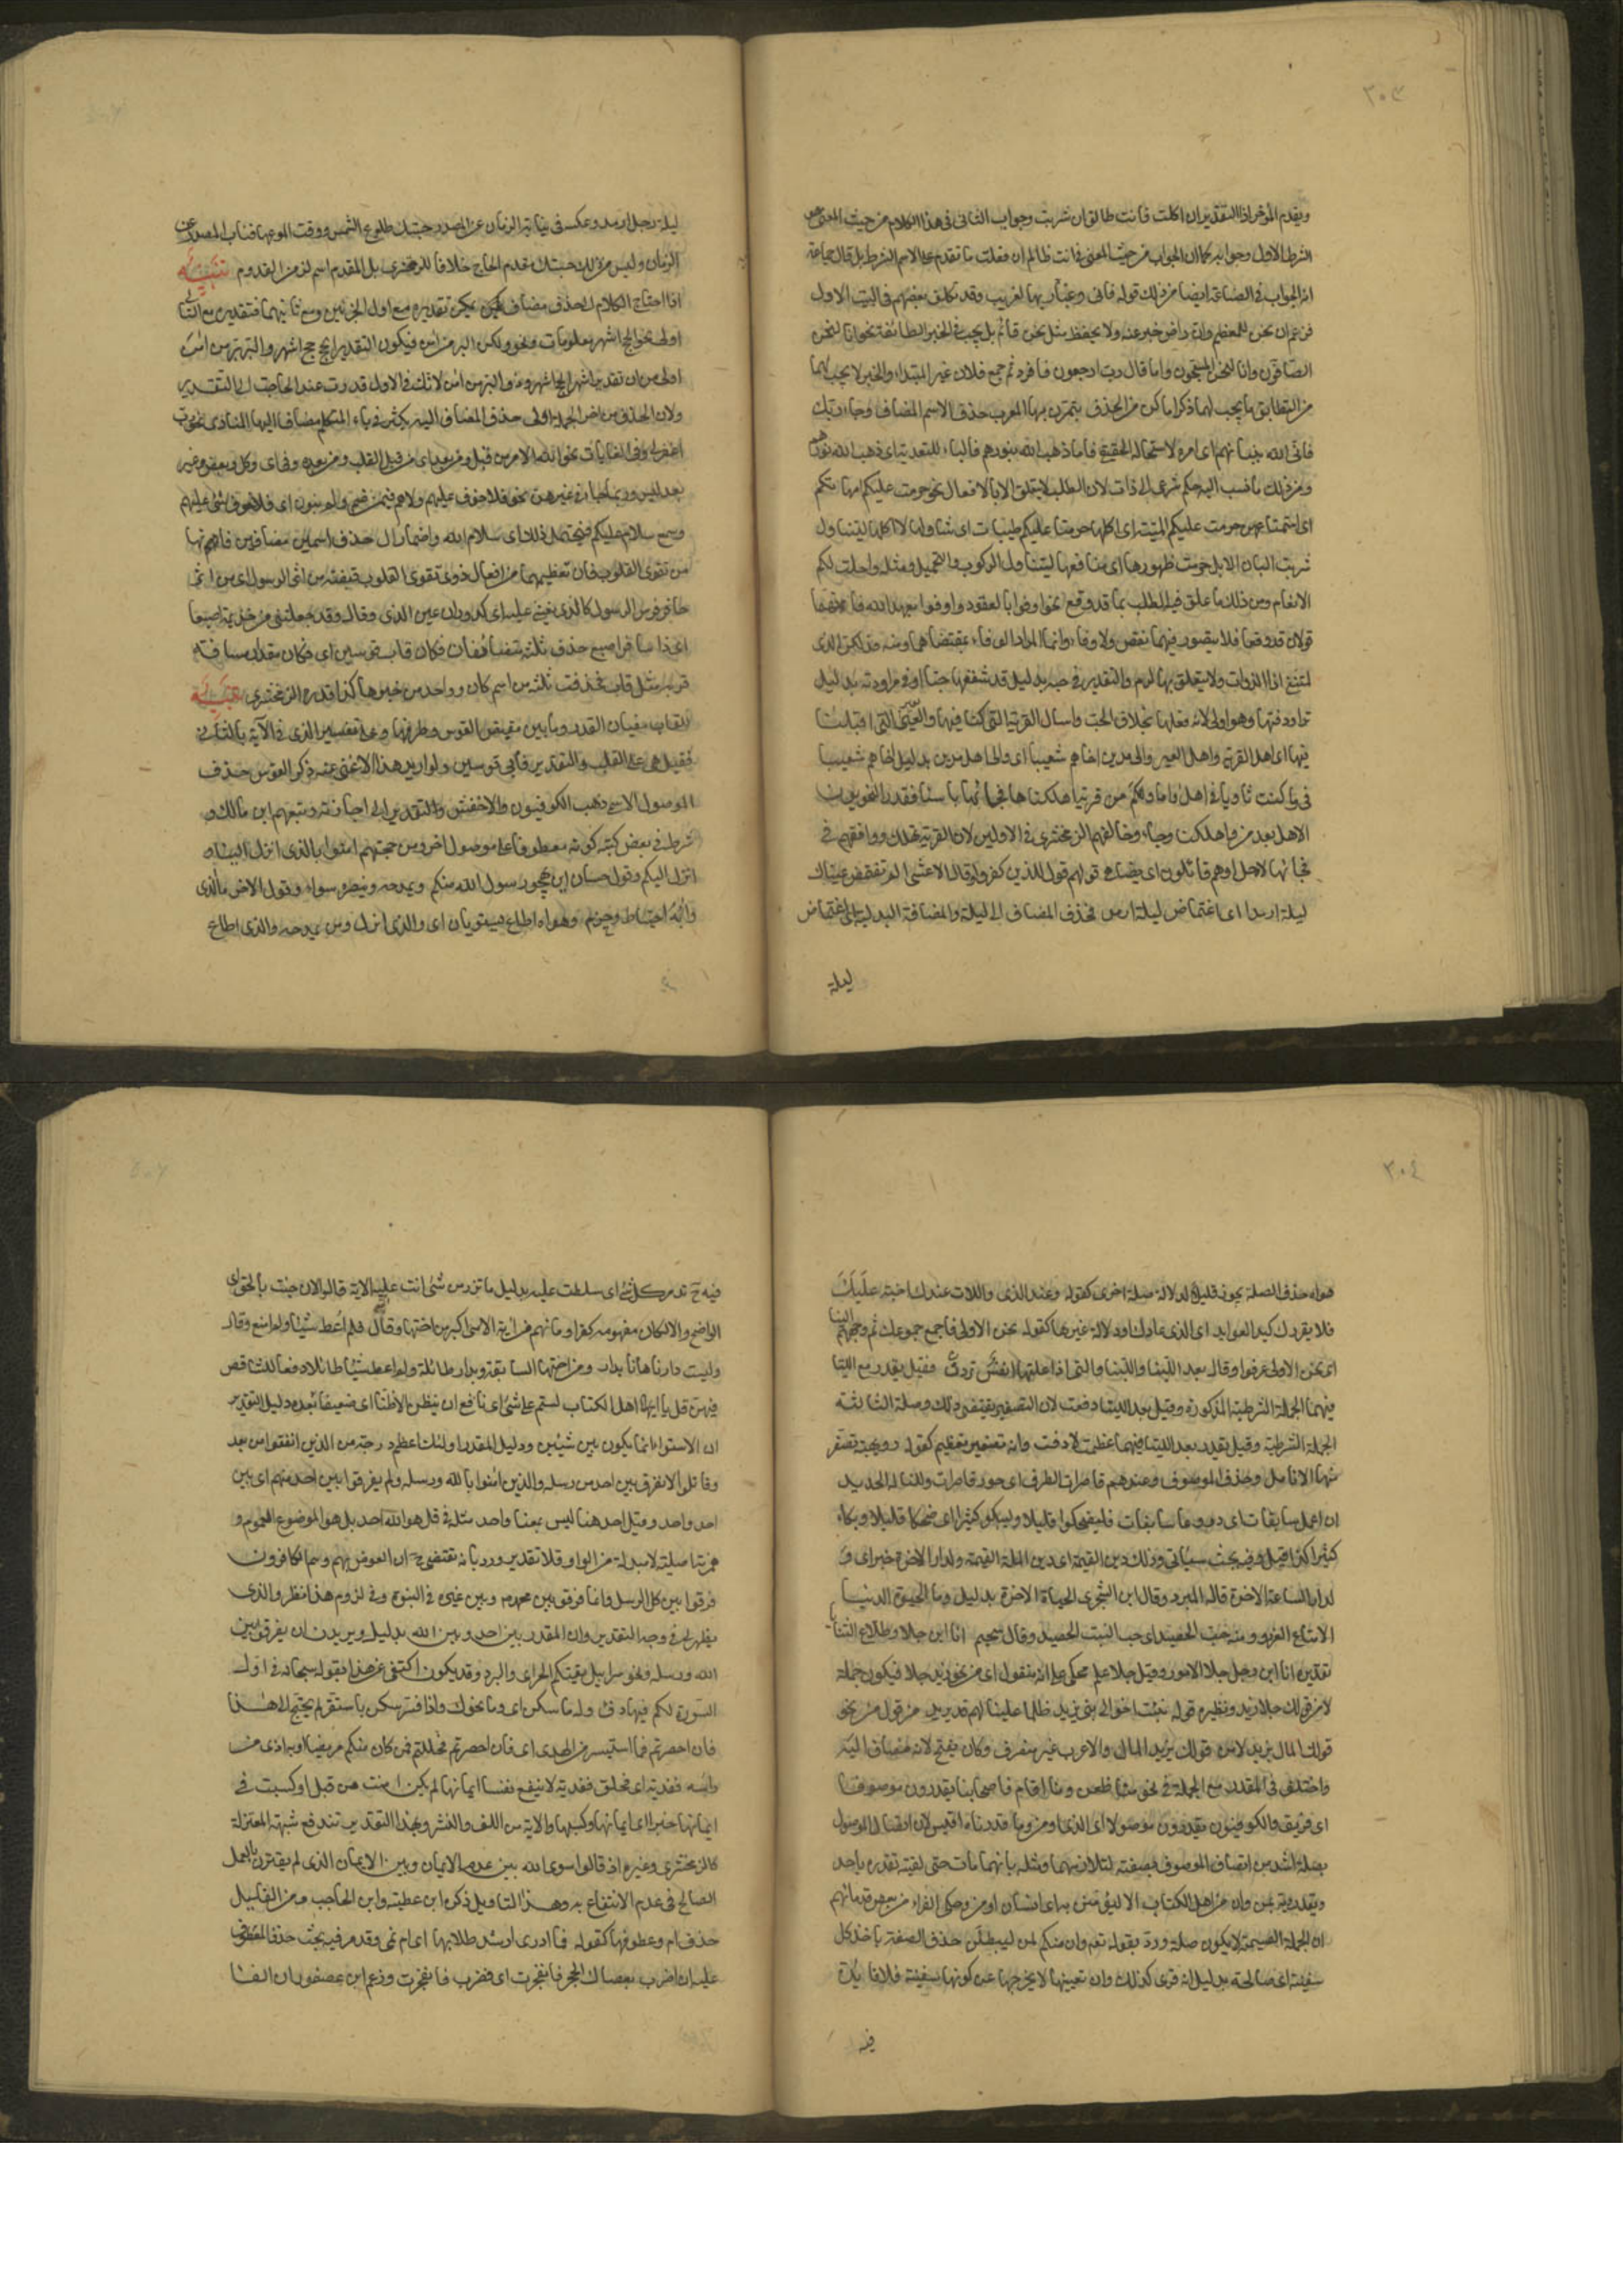 ٣٠٣
ويقدم المؤخر اذا التقدير ان اكلت فانت طالق ان شربت وجواب الثانى فى هذا الكلام من حيث المعنى هو
الشرط الاول وجوابه كما ان الجواب من حيث المعنى فى انت ظالم ان فعلت ما تقدم على الاسم الشرط بل قال جماعة
انه الجواب فى الصناعة ايضا من ذلك قوله فانى وقيار بها لغريب وقد تكلف بعضهم فى البيت الاول
فزعم ان نحن للمعظم وان راض خبر عنه ولا يحفظ مثل نحن قائم بل يجب فى الخبر المطابقة نحو وانا لنحن
الصافون وانا لنحن المسبحون واما قال رب ارجعون فافرد ثم جمع فلان غير المبتداء والخبر لا يجب لهما
من التطابق ما يجب لهما ذكر اماكن من الحذف يتمرن بها المعرب حذف الاسم المضاف وجاء ربك
فاتى الله بنيانهم اى امره لاستحالة الحقيقة فاما ذهب الله بنورهم فالباء للتعدية اى اذهب الله نورهم
ومن ذلك ما نسب اليه حكم شرعى الى ذات لان الطلب لا يتعلق الا بالافعال نحو حرمت عليكم امهاتكم
اى استمتاعهن حرمت عليكم الميتة اى اكلها حرمنا عليهم طيبات اى تناولها لا اكلها ليتناول
شرب البان الابل حرمت ظهورها اى منافعها ليتناول الركوب والتحميل ومثله واحلت لكم
الانعام ومن ذلك ما علق فيه الطلب بما قد وقع نحو اوفوا بالعقود واوفوا بعهد الله فانهما
قولان قد وقعا فلا يتصور فيهما نقض ولا وفاء وانما المراد الوفاء بمقتضاهما ومنه فذلكن الذى
لمتننى فيه اذ الذوات ولا يتعلق بها لوم والتقدير فى حبه بدليل قد شغفها حبا او فى مراودته بدليل
تراود فتيها وهو اولى لانه فعلها بخلاف الحب واسال القرية التى كنا فيها والعير التى اقبلنا
فيها اى اهل القرية واهل العير والى مدين اخاهم شعيبا اى والى اهل مدين بدليل اخاهم شعيبا
فى وما كنت ثاويا فى اهل واما وكم من قرية اهلكناها فجائها باسنا فقدر النحويون
الاهل بعد من واهلكنا وجاء وخالفهم الزمخشرى فى الاولين لان القرية تهلك ووافقهم فى
فجائها لاجل اوهم قائلون اى يضاهى قولهم قول الذين كفروا وقال الاعشى الم تغتمض عيناك
ليلة ارمدا اى اغتماض ليلة ارمد فحذف المضاف الى ليلة والمضاف اليه ليلة الى اغتماض
ليلة
ليلة رجل ارمد وعكسه فى نيابة الزمان عن المصدر جئتك طلوع الشمس ووقت طلوعها فناب المصدر عن
الزمان وليس من ذلك جئتك مقدم الحاج خلافا للزمخشرى بل المقدم اسم لزمن القدوم تنبيه
اذا احتاج الكلام الى حذف مضاف يمكن تقديره مع اول الجزئين ومع ثانيهما فتقديره مع الثانى
اولى نحو الحج اشهر معلومات ونحو ولكن البر من آمن فيكون التقدير الحج حج اشهر والبر بر من آمن
اولى من ان تقدير اشهر الحج اشهر وذو البر من آمن لانك فى الاول قدرت عند الحاجة الى التقدير
ولان الحذف من اخر الجملة اولى حذف المضاف اليه يكثر فى ياء المتكلم مضافا اليها المنادى نحو رب
اغفر لى وفى الغايات نحو لله الامر من قبل ومن بعد اى من قبل الغلب ومن بعده وفى اى وكل وبعض وغير
بعد ليس وربما جاء فى غيرهن نحو فلا خوف عليهم فيمن ضم ولم ينون اى فلا خوف شئ عليهم
وسمع سلام عليكم فيحتمل ذلك اى سلام الله واضمار ال حذف اسمين مضافين فانها
من تقوى القلوب فان تعظيمها من افعال ذوى تقوى القلوب قبضة من اثر الرسول اى من اثر
حافر فرس الرسول كالذى يغشى عليه اى كدوران عين الذى وقال وقد جعلتنى من حزيمة اصبعا
اى ذا مسافة اصبع حذف ثلثة متضايفات فكان قاب قوسين اى فكان مقدار مسافة
قربه مثل قاب فحذفت ثلثة من اسم كان وواحد من خبرها كذا قدره الزمخشرى تنبيه
للقاب معنيان القدر وما بين مقبض القوس وطرفها وعلى تفسير الذى فى الآية بالثانى
فقيل هى على القلب والتقدير قابى قوسين ولو اريد هذا لاغنى عنه ذكر القوس حذف
الموصول الاسمى ذهب الكوفيون والاخفش الى اجازته وتبعهم ابن مالك و
شرط فى بعض كتبه كونه معطوفا على موصول اخر ومن حجتهم امنوا بالذى انزل الينا و
انزل اليكم وقول حسان امن يهجو رسول الله منكم ويمدحه وينصره سواء وقول الاخر ما الذى
دأبه احتياط وحزم وهواه اطاع يستويان اى والذى انزل ومن يمدحه والذى اطاع
٣٠٤
هواه حذف الصلة يجوز قليلا لدلالة صلة اخرى كقوله وعند الذى واللات عندك احنة عليك
فلا يغررك كيد العوايد اى الذى عادك ودلالة غيرها كقوله نحن الاولى فاجمع جموعك ثم وجههم الينا
اى نحن الاولى عرفوا وقال بعد اللتيا واللتيا والتى اذا علتها انفس تردت فقيل يقدر مع اللتيا
فيهما الجملة الشرطية المذكورة وقيل بعد اللتيا دفعت لان التصغير يقتضى ذلك وصلة الثالثة
الجملة الشرطية وقيل يقدر بعد اللتيا فيهما عظمت لا دقت وانه تصغير تعظيم كقوله دويهية تصفر
منها الانامل وحذف الموصوف وعندهم قاصرات الطرف اى حور قاصرات والنا له الحديد
ان اعمل سابغات اى دروعا سابغات فليضحكوا قليلا وليبكوا كثيرا اى ضحكا قليلا وبكاء
كثيرا كذا قيل وفيه بحث سيأتى وذلك دين القيمة اى دين الملة القيمة ولدار الاخرة خير اى و
لدار الساعة الاخرة قاله المبرد وقال ابن الشجرى الحياة الاخرة بدليل وما الحيوة الدنيا
الا متاع الغرور ومنه حب الحصيد اى حب النبت الحصيد وقال سحيم انا ابن جلا وطلاع الثنايا
تقديره انا ابن رجل جلا الامور وقيل جلا علم محكى على انه منقول اى من نحو زيد جلا فيكون جملة
لا من قولك جلا زيد ونظيره قوله نبئت اخوالى بنى يزيد ظلما علينا لهم فديد يزيد من قول من نحو
قولك المال يزيد لا من قولك يزيد المال والا لاعرب غير منصرف وكان يفتح لانه مضاف اليه
واختلف فى المقدر مع الجملة فى نحو منا ظعن ومنا اقام فاصحابنا يقدرون موصوفا
اى فريق والكوفيون يقدرون موصولا اى الذى او من وما قدرناه اقيس لان اتصال الموصول
بصلة اشد من اتصال الموصوف بصفته لتلازمهما ومثله ما منهما مات حتى لقيته تقديره باحد
ويقدرونه بمن وان من اهل الكتاب الا ليؤمنن به اى انسان او من وحكى الفراء عن بعض قدمائهم
ان الجملة القسمية لا يكون صلة ورد بقوله نعم وان منكم لمن ليبطئن حذف الصفة ياخذ كل
سفينة اى صالحة بدليل انه قرئ كذلك وان تعييبها لا يخرجها عن كونها سفينة فلا فائدة
فيه
فيه ح تدمر كل شئ اى سلطت عليه بدليل ما تذر من شئ اتت عليه الآية قالوا الان جئت بالحق اى
الواضح والا لكان مفهومه كفرا وما نريهم من آية الا هى اكبر من اختها وقال فلم اعط شيئا ولم امنع وقال
وليست دارنا هاتا بدار ومن اختها السابقة وبدار طائلة ولم اعط شيئا طائلا دفعا للتناقض
فيهن قل يا ايها اهل الكتاب لستم على شئ اى نافع ان نظن الا ظنا اى ضعيفا
ان الاستواء انما يكون بين شيئين ودليل المقدر اولئك اعظم درجة من الذين انفقوا من بعد
وقاتلوا لا نفرق بين احد من رسله والذين امنوا بالله ورسله ولم يفرقوا بين احد منهم اى بين
احد واحد وقيل احد هنا ليس بمعنا واحد مثله فى قل هو الله احد بل هو الموضوع للعموم و
همزتها اصلية لا مبدلة من الواو فلا تقدير ورد بانه يقتضى ح ان المعرض بهم وهم الكافرون
فرقوا بين كل الرسل وانما فرقوا بين محمد ص وبين غيره فى النبوة وفى لزوم هذا نظر والذى
يظهر لى فى وجه التقدير وان المقدر بين احد وبين الله بدليل ويريدون ان يفرقوا بين
الله ورسله ونحو سرابيل تقيكم الحر اى والبرد وقد يكون اكتفى عن هذا بقوله سبحانه فى اول
السورة لكم فيها دفء وله ما سكن اى وما تحرك واذا فسر سكن باستقر لم يحتج الى هذا
فان احصرتم فما استيسر من الهدى اى فان احصرتم فحللتم فمن كان منكم مريضا او به اذى من
رأسه ففدية اى فحلق ففدية لا ينفع نفسا ايمانها لم يكن امنت من قبل او كسبت فى
ايمانها خيرا اى ايمانها وكسبها والآية من اللف والنشر وبهذا التقدير تندفع شبهة المعتزلة
كالزمخشرى وغيره اذ قالوا سوى الله بين عدم الايمان وبين الايمان الذى لم يقترن بالعمل
الصالح فى عدم الانتفاع به وهذا التاويل ذكره ابن عطية وابن الحاجب ومن القليل
حذف ام ومعطوفها كقوله فما ادرى ارشد طلابها اى ام غى وقد مر فيه بحث حذف المعطوف
عليه ان اضرب بعصاك الحجر فانفجرت اى فضرب فانفجرت وزعم ابن عصفور ان الفاء